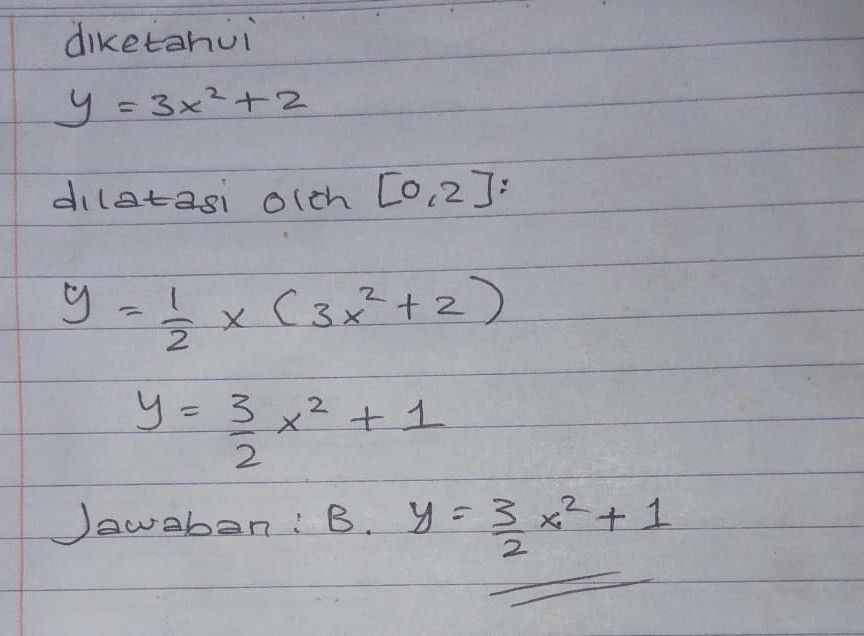 diketahui
y = 3x² + 2
dilatasi oleh [0,2]:
y = 1/2 × (3x² + 2)
y = 3/2 x² + 1
Jawaban : B. y = 3/2 x² + 1